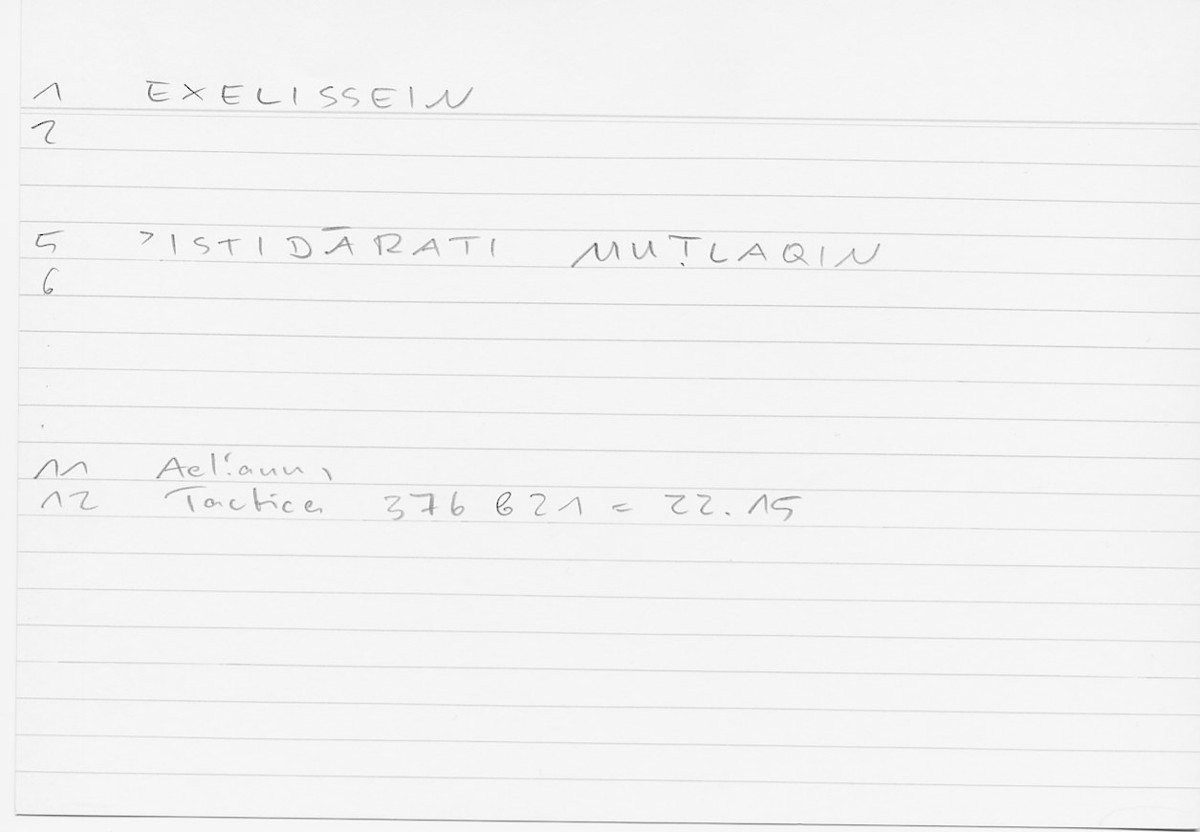 1 EXELISSEIN
2
5 ʾISTIDĀRATI MUṬLAQIN
6
11 Aelianus,
12 Tactica 376 b 21 = 22.15